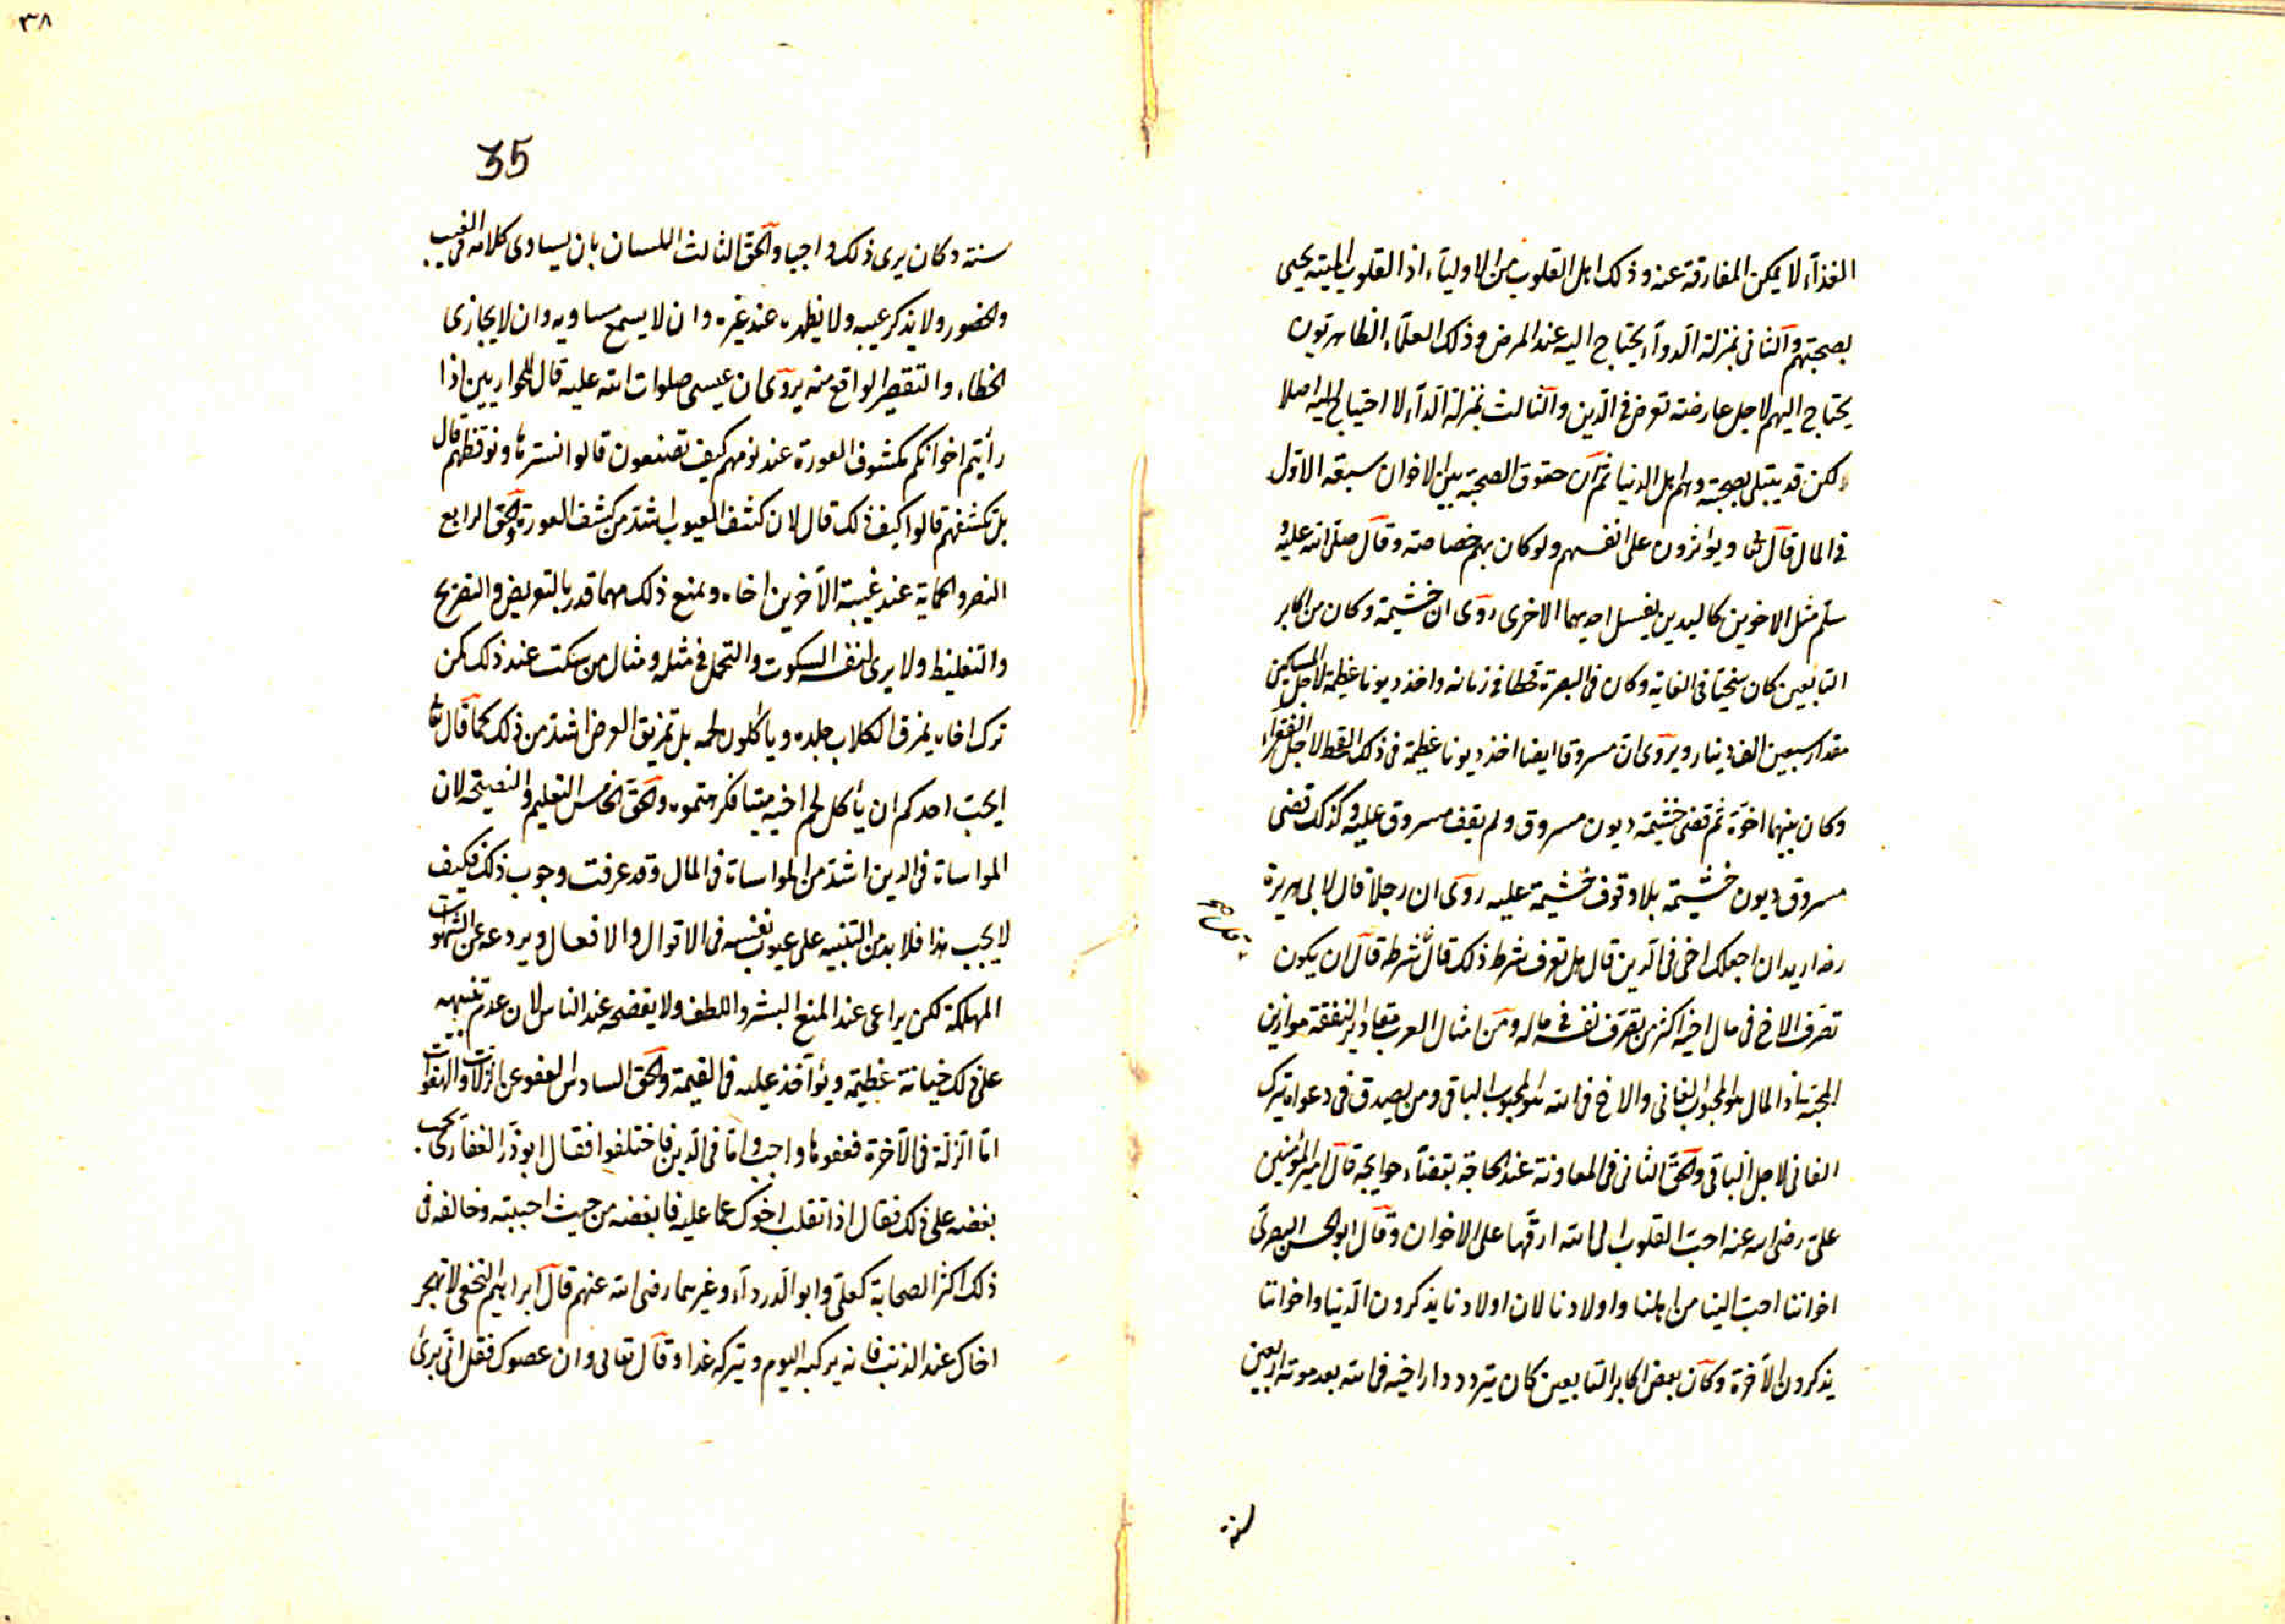 الغذاء لا يمكن المفارقة عنه وذلك اهل القلوب من الاولياء اذ القلوب الميتة يحيى
بصحبتهم والثانى بمنزلة الدواء يحتاج اليه عند المرض وذلك العلماء الظاهريون
يحتاج اليهم لاجل عارضة تعرض فى الدين والثالث بمنزلة الداء لا احتياج اليه اصلا
ولكن قد يبتلى بصحبته وهم اهل الدنيا ثم ان حقوق الصحبة بين الاخوان سبعة الاول
فى المال قال تعا ويؤثرون على انفسهم ولو كان بهم خصاصة وقال صلى الله عليه و
سلم مثل الاخوين كاليدين يغسل احديهما الاخرى روى ان خشيمة وكان من اكابر
التابعين كان سخيا فى الغاية وكان فى البصرة قحطا فى زمانه واخذ ديونا عظيمة لاجل المساكين
مقدار سبعين الف دينار ويروى ان مسروقا ايضا اخذ ديونا عظيمة فى ذلك القحط لاجل الفقراء
وكان بينهما اخوة ثم قضى خشيمة ديون مسروق ولم يقف مسروق عليه وكذلك قضى
مسروق ديون خشيمة بلا وقوف خشيمة عليه روى ان رجلا قال لابى هريرة
رضه اريد ان اجعلك اخى فى الدين قال هل تعرف شرط ذلك قال شرطه قال ان يكون
تصرف الاخ فى مال اخيه اكثر من تصرف نفسه فى ماله ومن امثال العرب مقادير النفقة موازين
المحبة اذ المال هو المحبوب الفانى والاخ فى الله هو المحبوب الباقى ومن يصدق فى دعواه يترك
الفانى لاجل الباقى والحق الثانى فى المعاونة عند الحاجة بقضاء حوايجه قال امير المؤمنين
على رضى الله عنه احب القلوب الى الله ارقها على الاخوان وقال ابو الحسن البصرى
اخواننا احب الينا من اهلنا واولادنا لان اولادنا يذكرون الدنيا واخواننا
يذكرون الآخرة وكان بعض اكابر التابعين كان يتردد دار اخيه فى الله بعد موته اربعين
سنة
٣٨
35
سنة وكان يرى ذلك واجبا والحق الثالث اللسان بان يساوى كلامه فى الغيب
والحضور ولا يذكر عيبه ولا يظهره عند غيره وان لا يسمع مساويه وان لا يجازى
الخطاء والتقصير الواقع منه يروى ان عيسى صلوات الله عليه قال للحواريين اذا
رأيتم اخوانكم مكشوف العورة عند نومهم كيف تصنعون قالوا نسترها ونوقظهم قال
بل تكشفهم قالوا كيف ذلك قال لان كشف العيوب اشد من كشف العورة والحق الرابع
النصر والحماية عند غيبة الآخرين اخاه ويمنع ذلك مهما قدر بالتعريض والتصريح
والتغليظ ولا يرى لنفسه السكوت والتحمل فى مثله ومثال من سكت عند ذلك كمن
ترك اخاه يمزق الكلاب جلده ويأكلون لحمه بل تمزيق العرض اشد من ذلك كما قال تعا
ايحب احدكم ان يأكل لحم اخيه ميتا فكرهتموه والحق الخامس التعليم والنصيحة لان
المواساة فى الدين اشد من المواساة فى المال وقد عرفت وجوب ذلك فكيف
لا يجب هذا فلا بد من التنبيه على عيوب نفسه فى الاقوال والافعال ويردعه عن الشهوات
المهلكة لكن يراعى عند المنع البشر واللطف ولا يفضحه عند الناس لان عدم تنبيهه
على ذلك خيانة عظيمة ويؤآخذ عليه فى القيمة والحق السادس العفو عن الزلات والهفوات
اما الزلة فى الآخرة فعفوها واجب واما فى الدين فاختلفوا فقال ابو ذر الغفارى يجب
بغضه على ذلك فقال اذا انقلب اخوك عما عليه فابغضه من حيث احببته وخالفه فى
ذلك اكثر الصحابة كعلى وابو الدرداء وغيرهما رضى الله عنهم قال ابراهيم النخعى لا تهجر
اخاك عند الذنب فانه يركبه اليوم ويتركه غدا وقال تعالى وان عصوك فقل انى برئ